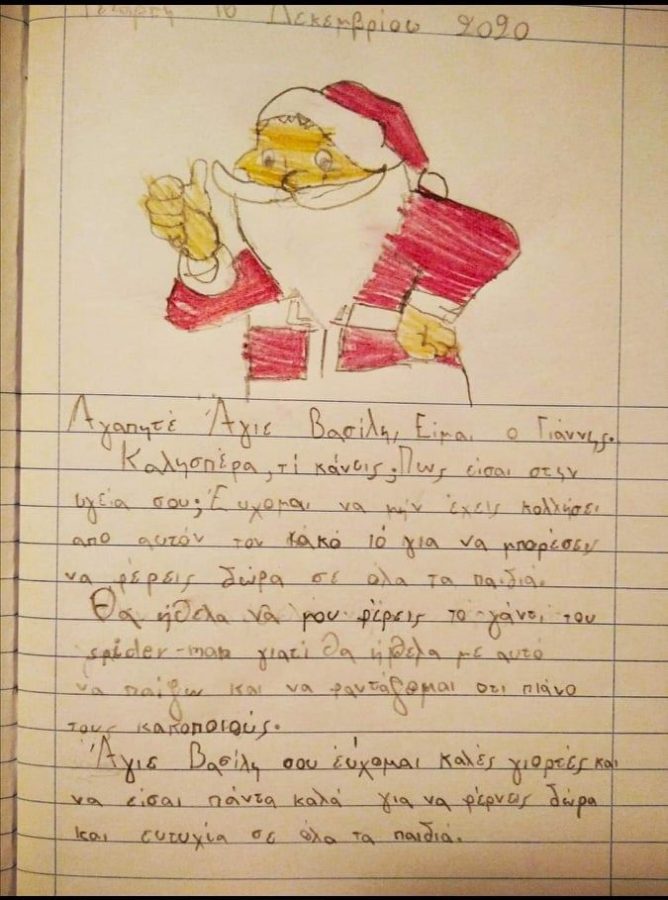 Τετάρτη 10 Δεκεμβρίου 2020
Αγαπητέ Άγιε Βασίλη, Είμαι ο Γιάννης.
Καλησπέρα, τί κάνεις; Πως είσαι στην
υγεία σου; Εύχομαι να μήν έχεις κολλήσει
απο αυτόν τον κακό ιό για να μπορέσεις
να φέρεις δώρα σε όλα τα παιδιά.
Θα ήθελα να μου φέρεις το γάντι του
spider-man γιατί θα ήθελα με αυτό
να παίζω και να φαντάζομαι οτι πιάνο
τους κακοποιούς.
Άγιε Βασίλη σου εύχομαι καλές γιορτές και
να είσαι πάντα καλά για να φέρνεις δώρα
και ευτυχία σε όλα τα παιδιά.